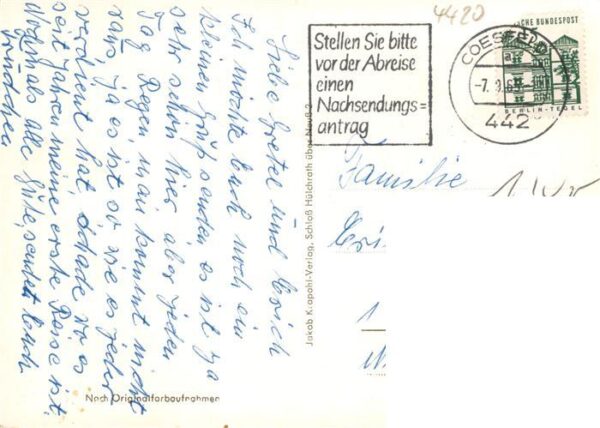 4420
Stellen Sie bitte
vor der Abreise
einen
Nachsendungs=
antrag
COESFELD
-7. 9. 6
442
DEUTSCHE BUNDESPOST
BERLIN-TEGEL
Liebe Gretel und Erich
Ich möchte Euch noch ein
kleinen Gruß senden es ist ja
sehr schön hier aber jeden
Tag Regen, man kommt nicht
raus, ja es ist so wie es jeder
verdient hat, schade wo es
seit Jahren meine erste Reise ist.
Nochmals alle Gute, sendet Euch
Familie
1
Jakob Krapohl-Verlag, Schloß Hülchrath über Neuß 2
Nach Originalfarbaufnahmen